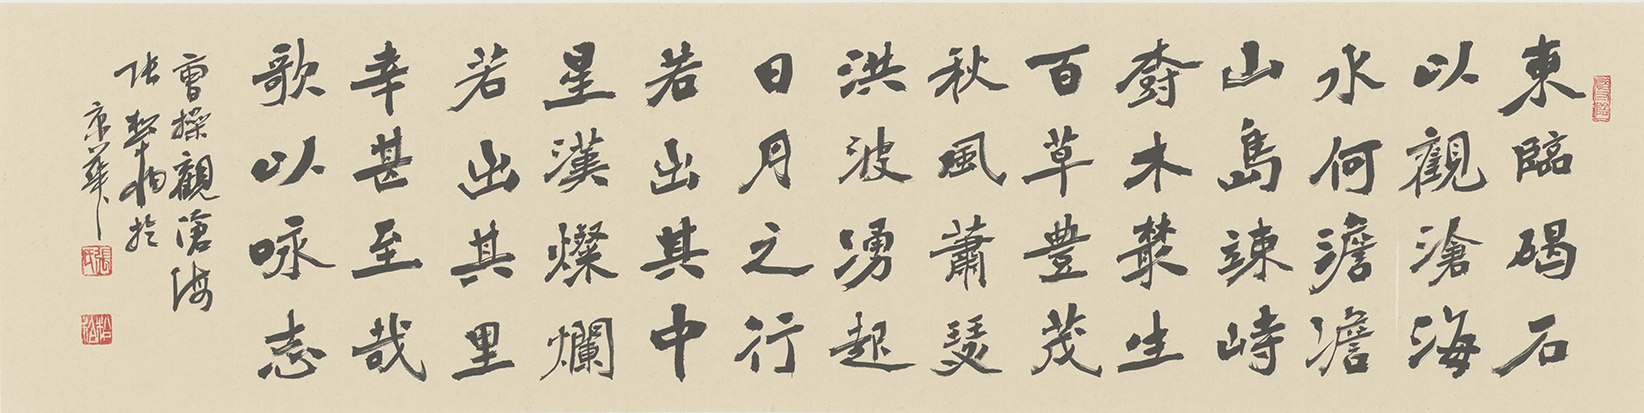 東臨碣石
以觀滄海
水何澹澹
山島竦峙
樹木叢生
百草豐茂
秋風蕭瑟
洪波湧起
日月之行
若出其中
星漢燦爛
若出其里
幸甚至哉
歌以咏志
曹操觀滄海
张於
京華